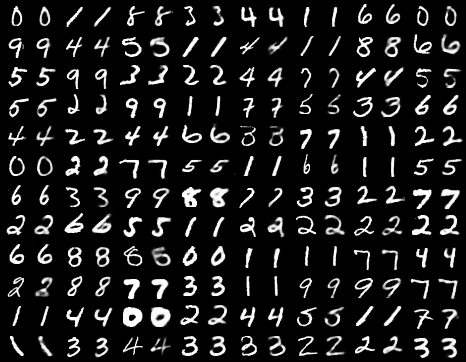 0 0 1 1 8 8 3 3 4 4 1 1 6 6 0 0
9 9 4 4 5 5 1 1 4 4 1 1 8 8 6 6
5 5 9 9 3 3 2 2 4 4 7 7 4 4 5 5
5 5 2 2 9 9 1 1 7 7 5 5 3 3 6 6
4 4 2 2 4 4 6 6 3 3 7 7 1 1 2 2
0 0 2 2 7 7 5 5 1 1 6 6 1 1 5 5
6 6 3 3 9 9 8 8 7 7 3 3 2 2 7 7
2 2 6 6 5 5 1 1 2 2 2 2 2 2 2 2
6 6 8 8 8 0 0 1 1 1 1 7 7 4 4
2 2 8 8 7 7 3 3 1 1 9 9 9 9 7 7
1 1 4 4 0 0 2 2 4 4 5 5 1 1 7 7
1 1 3 3 4 4 3 3 3 3 2 2 2 2 3 3